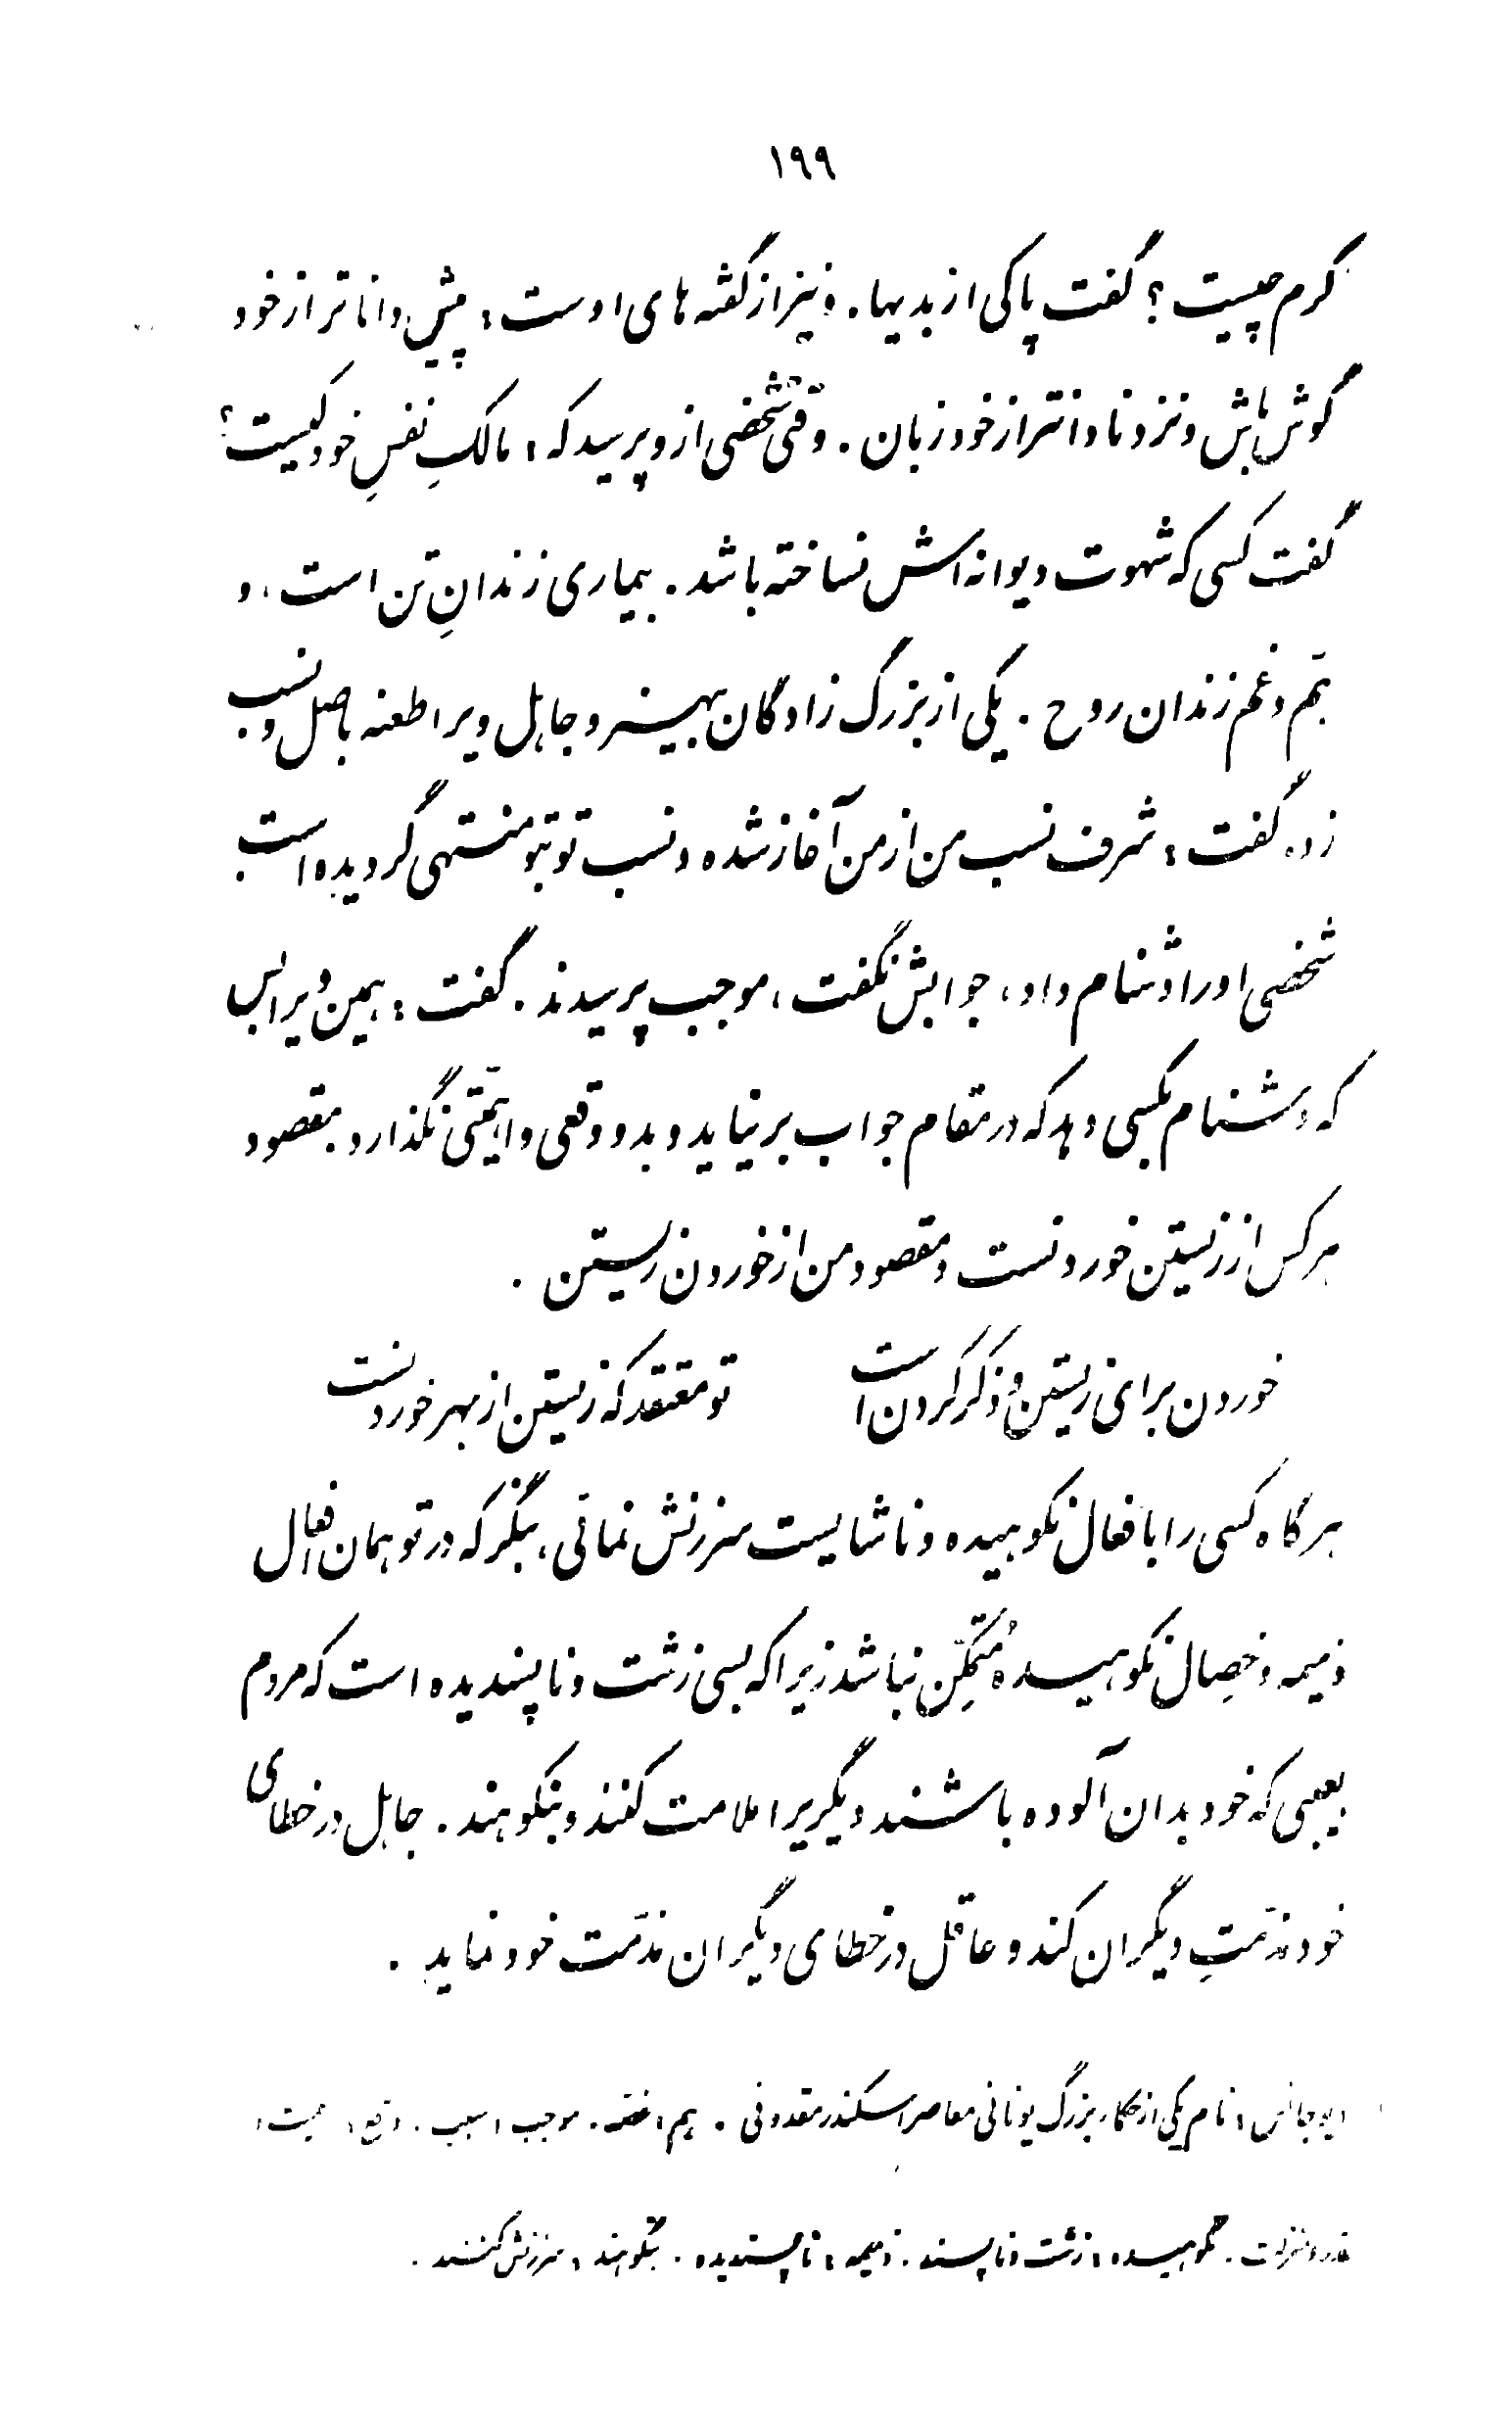 ۱۹۹
کرم چیست؟ گفت پاکی از بدیها. و نیز از گفته‌های اوست: پیش داناتر از خود
گوش باش و نزد نادانتر از خود زبان. وقتی شخصی از وپرسید که: مالکِ نفسِ خود کیست؟
گفت کسی که شهوت دیوانه‌اش نساخته باشد. بیماری زندانِ تن است، و
همّ و غم زندان روح. یکی از بزرگ زادگان بیهنر و جاهل ویرا طعنه باصل و نسب
زد، گفت: شرف نسب من از من آغاز شده و نسب تو بتو منتهی گردیده است
شخصی او را دشنام داد، جوابش نگفت، موجب پرسیدند. گفت: همین ویرا بس
که دشنام بکسی دهد که در مقام جواب بر نیاید و بدو وقعی و اهمّیتی نگذارد. مقصود
هر کس از زیستن خوردنست و مقصود من از خوردن زیستن.
خوردن برای زیستن و ذکر کردن است
تو معتقد که زیستن از بهر خوردنست
هر گاه کسی را بافعال نکوهیده و ناشایست سرزنش نمائی، بنگر که در تو همان افعال
ذمیمه و خصِال نکوهیده مُتمکّن نباشد زیرا که بسی زشت و ناپسندیده است که مردم
بعیبی که خود بدان آلوده باشند دیگریرا ملامت کنند و بنکوهند. جاهل در خطای
خود مذمّتِ دیگران کند و عاقل در خطای دیگران مذمّت خود نماید.
دیوجانس: نام یکی از حکماء بزرگ یونانی معاصر اسکندر مقدونی. همّ: غصّه. موجب: سبب. وقع: اهمیت،
قدر و منزلت. نکوهیده: زشت و ناپسند. ذمیمه: ناپسندیده. بنکوهند: سرزنش کنند.